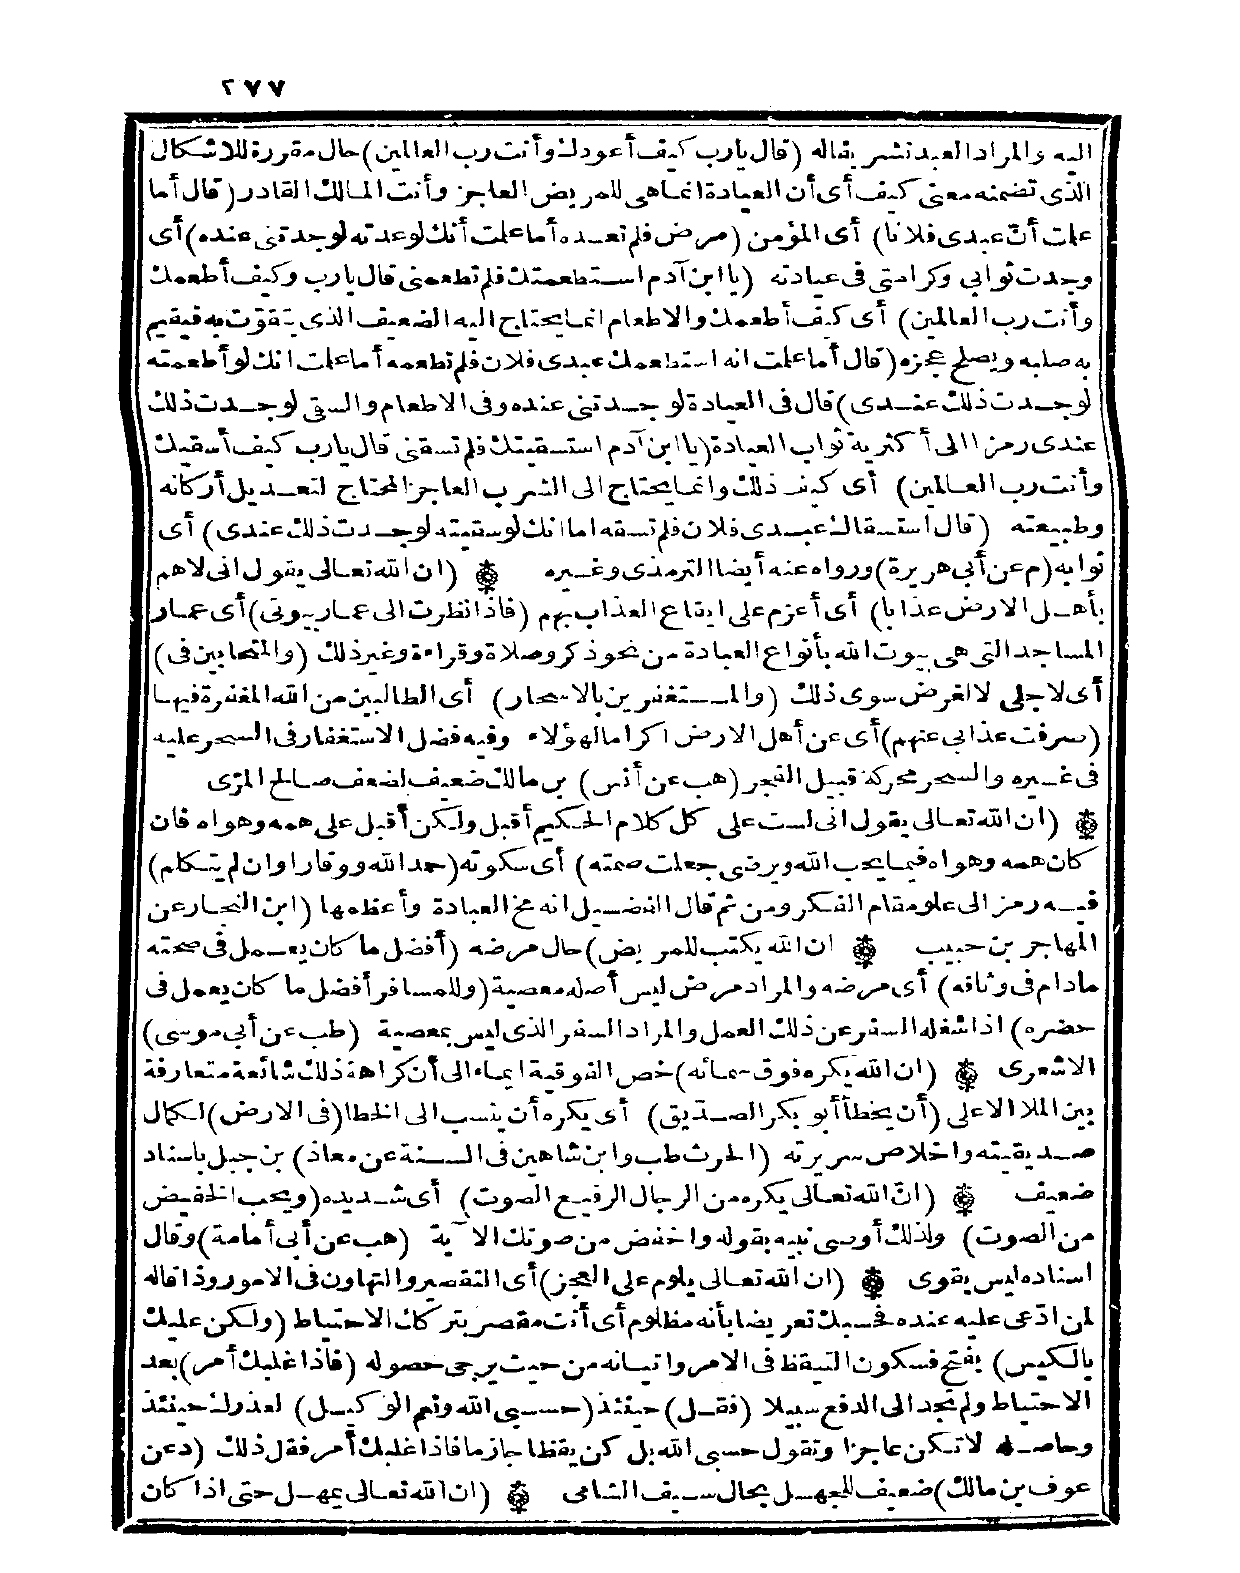 ٢٧٧
اليه والمراد العبد نشر يقاله (قال يا رب كيف أعودك وأنت رب العالمين) حال مقررة للاشكال
الذى تضمنه معنى كيف أى أن العيادة انما هى للمريض العاجز وأنت المالك القادر (قال أما
علمت أنّ عبدى فلانا) أى المؤمن (مرض فلم تعده أما علمت أنك لو عدته لوجدتنى عنده) أى
وجدت ثوابى وكرامتى فى عيادته (يا ابن آدم استطعمتك فلم تطعمنى قال يا رب وكيف أطعمك
وأنت رب العالمين) أى كيف أطعمك والاطعام انما يحتاج اليه الضعيف الذى يتقوّت به فيقيم
به صلبه ويصلح عجزه (قال أما علمت انه استطعمك عبدى فلان فلم تطعمه أما علمت انك لو أطعمته
لوجدت ذلك عندى) قال فى العيادة لوجدتنى عنده وفى الاطعام والسقى لوجدت ذلك
عندى رمزا الى أكثرية ثواب العيادة (يا ابن آدم استسقيتك فلم تسقنى قال يا رب كيف أسقيك
وأنت رب العالمين) أى كيف ذلك وانما يحتاج الى الشرب العاجز المحتاج لتعديل أركانه
وطبيعته (قال استسقاك عبدى فلان فلم تسقه اما انك لو سقيته لوجدت ذلك عندى) أى
ثوابه (م عن أبى هريرة) ورواه عنه أيضا الترمذى وغيره ۞ (ان الله تعالى يقول انى لاهم
بأهل الارض عذابا) أى أعزم على ايقاع العذاب بهم (فاذا نظرت الى عمار بيوتى) أى عمار
المساجد التى هى بيوت الله بأنواع العبادة من نحو ذكر وصلاة وقراءة وغير ذلك (والمتحابين فى)
أى لاجلى لا لغرض سوى ذلك (والمستغفرين بالاسحار) أى الطالبين من الله المغفرة فيها
(صرفت عذابى عنهم) أى عن أهل الارض اكراما لهؤلاء وفيه فضل الاستغفار فى السحر عليه
فى غيره والسحر محركة قبيل الفجر (هب عن أنس) بن مالك ضعيف لضعف صالح المرّى
۞ (ان الله تعالى يقول انى لست على كل كلام الحكيم أقبل ولكن أقبل على همه وهواه فان
كان همه وهواه فيما يحب الله ويرضى جعلت صمته) أى سكوته (حمدا لله ووقارا وان لم يتكلم)
فيه رمز الى علو مقام الفكر ومن ثم قال الفضيل انه مخ العبادة وأعظمها (ابن النجار عن
المهاجر بن حبيب ۞ ان الله يكتب للمريض) حال مرضه (أفضل ما كان يعمل فى صحته
مادام فى وثاقه) أى مرضه والمراد مرض ليس أصله معصية (وللمسافر أفضل ما كان يعمل فى
حضره) اذا شغله السفر عن ذلك العمل والمراد السفر الذى ليس بمعصية (طب عن أبى موسى)
الاشعرى ۞ (ان الله يكره فوق سمائه) خص الفوقية ايماء الى أن كراهة ذلك شائعة متعارفة
بين الملا الاعلى (أن يخطأ أبو بكر الصديق) أى يكره أن ينسب الى الخطا (فى الارض) لكمال
صديقيته واخلاص سريرته (الحرث طب وابن شاهين فى السنة عن معاذ) بن جبل باسناد
ضعيف ۞ (انّ الله تعالى يكره من الرجال الرفيع الصوت) أى شديده (ويحب الخفيض
من الصوت) ولذلك أوصى نبيه بقوله واخفض من صوتك الآية (هب عن أبى أمامة) وقال
اسناده ليس بقوى ۞ (ان الله تعالى يلوم على العجز) أى التقصير والتهاون فى الامور وذا قاله
لمن ادّعى عليه عنده فحسبك تعريضا بأنه مظلوم أى أنت مقصر بتركك الاحتياط (ولكن عليك
بالكيس) بفتح فسكون التيقظ فى الامر واتيانه من حيث يرجى حصوله (فاذا غلبك أمر) بعد
الاحتياط ولم تجد الى الدفع سبيلا (فقل) حينئذ (حسبى الله ونعم الوكيل) لعذرك حينئذ
وحاصله لا تكن عاجزا وتقول حسبى الله بل كن يقظا جازما فاذا غلبك أمر فقل ذلك (د عن
عوف بن مالك) ضعيف للجهل بحال سيف الشامى ۞ (ان الله تعالى يمهل حتى اذا كان